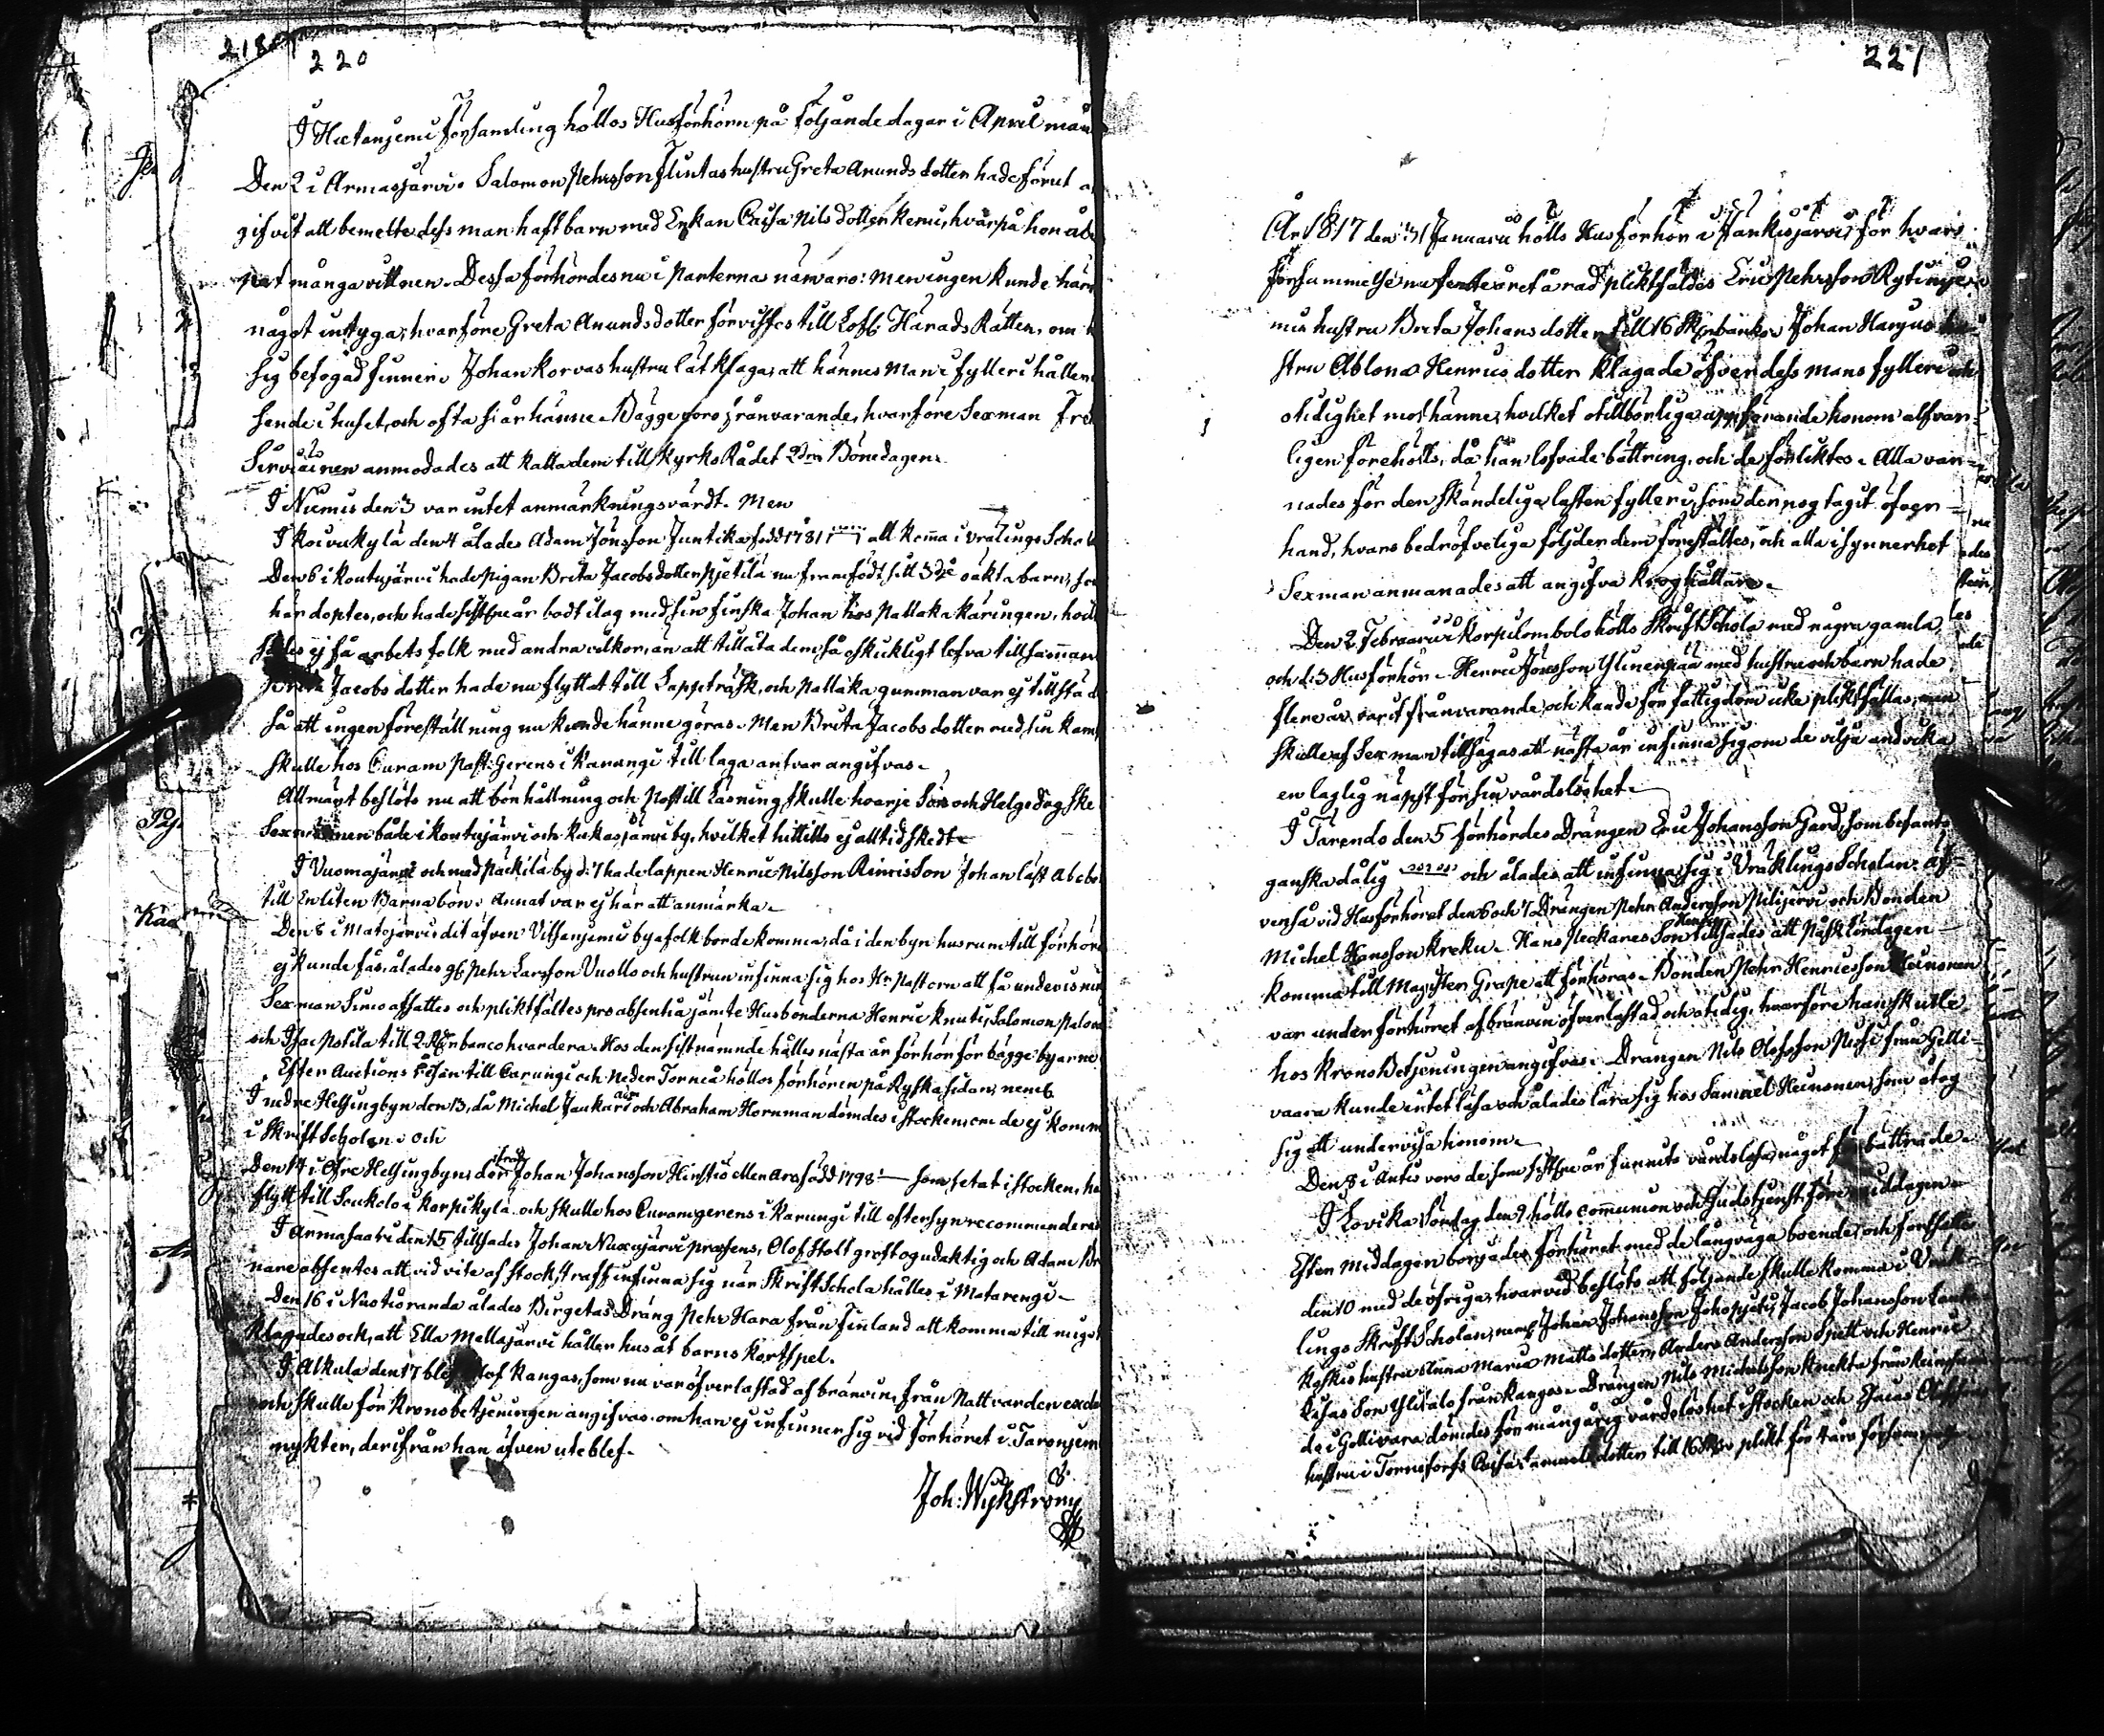 218
220
I Hietaniemi Församling höllos Husförhörn på följande dagar i April mån
Den 2 i Armasjärvi. Salomon Pehrsson Flintas hustru Greta Anundsdotter hade förut a
gifvit att bemelte dess man haft barn med Enkan Caisa Nilsdotter Kenu, hvarpå hon åbe
pat många vittnen. Dessa förhördes nu i parternas närvaro: men ingen kunde häru
något intyga, hvarföre Greta Anundsdotter förvistes till Lofl. Härads Rätten, om h
sig befogad finner. Johan Korvas hustru lät klaga, att hännes man i fylleri håller
sende i huset, och ofta slår hänne. Bägge voro frånvarande, hvarföre Sexman Fre
Sirviäinen anmodades att kalla dem till KyrkoRådet 2dra Bönedagen.
I Niemis den 3 var intet anmärkningsvärdt. Men
I Koivukylä den 4 ålades Adam Jönsson Juntika född 1781 att komma i vrälings Schol
Den 6 i Koutujärvi hade pigan Brita Jacobsdotter Pjetilä nu framfödt sitt 3dje oäkta barn, so
här döptes, och hade sistl. år bodt ilag med sin finska Johan hos Pallaka käringen, hvil
sades ej få arbetsfolk med andra vilkor, än att tillåta dem så oskickligt lefva tillsamman
Brita Jacobsdotter hade nu flyttat till Lappträsk, och Pallaka gumman var ej tillstäd
så att ingen föreställning nu kunde hänne göras. Men Brita Jacobsdotter med sin kam
skulle hos Curam past. Gerens i Karungi till laga ansvar angifvas.
Allmänt beslöts nu att bönhållning och Postill Läsning skulle hvarje Sön och Helgedag ske
Sexmännen både i Koutujärvi och Kukasjärvi by, hvilket hittills ej alltid skedt.
I Vuomajärvi och med Päckilä by d: 7 hade lappen Henric Nilsson Rimis Son Johan läst Abcbo
till En liten Barnabön. Annat var ej här att anmärka.
Den 8 i Matojärvi dit äfven Vitsaniemi bya folk borde komma, då i den byn husrum till förhör
ej kunde fås, ålades gl. Pehr Larsson Vuollo och hustrun infinna sig hos Hr Pastorn att få undervisnin
Sexman Simo afsattes och pliktfältes pro absentia jämte Husbönderna Henric Knuti, Salomon Palom
och Isac Potila till 2 Rdr banco hvardera. Hos den sistnämnde hålles nästa år förhör för bägge byarne
Efter Auctions resan till Carungi och Neder Torneå höllos förhören på Ryska sidan, neml.
I nedre Helsingbyn den 13, då Michel Jaukari och Abraham Hornman dömdes i stocken om de ej komm
i SkriftScholan. och
Den 14 i Öfre Helsingbyn, der Johan Johansson Hirstiö eller Ara född 1798 som setat i stocken, ha
flytt till Soukolo i Korpikylä och skulle hos Curamgerens i Karungi till eftersyn recommenderas
I Armasaari den 15 tillsades Johan Nuoxujärvi præsens, Olof Stolt groft ogudaktig och Adam Br
nare absentes att vid vite af stockstraff infinna sig när SkriftSchola hålles i Matarengi.
Den 16 i Nuotioranda ålades Birgetas Dräng Pehr Hara från Finland att komma till mig o
Klagades ock, att Ella Mellajärvi håller hus åt barns kortspel.
I Alkula den 17 blef Olof Kangas, som nu var öfverlastad af bränvin, från Nattvarden exclu
och skulle för Kronobetjeningen angifvas om han ej infinner sig vid förhöret i Taroniem
nykter, derifrån han äfven uteblef.
Joh: Wykström
221
År 1817 den 31 Januarii hölls Husförhör i Jankisjärvi, för hvars
försummelse nu femte året å rad pliktfäldes Eric Pehrsson Rytinge
mis hustru Brita Johansdotter till 16 Sk. banko. Johan Hanjus hu
stru Ablona Henricsdotter klagade öfver dess mans fylleri och
otidighet mot hänne, hvilket otillbörliga uppförande honom alfvar-
ligen förehölls, då han lofvade bättring, och de förliktes. Alla var-
nades för den skändeliga lasten fylleri, som der nog tagit öfver-
hand, hvars bedröfveliga följder dem föreställtes, och alla isynnerhet
Sexman anmanades att angifva kroghållare.
Den 2 Februarii i Korpilombolo hölls SkriftSchola med några gamla
och d. 3 Husförhör. Henric Jönsson Ylinenpää med hustru och barn hade
flere år varit frånvarande, och kunde för fattigdom icke pliktfällas, men
skulle af Sexman tillsägas att nästa år infinna sig om de vilja undvika
en laglig näpst för sin vårdslöshet.
I Tärendö den 5 förhördes Drängen Eric Johansson Gard, som befants
ganska dålig och ålades att infinna sig i VräklingsScholan. Äf-
venså vid Husförhöret den 6 och 7 Drängen Pehr Andersson Pilijärvi och Bonden
Michel Hansson Kreku. Hans Neckanes Son Henric tillsades att Påsk Lördagen
komma till Magister Grape att förhöras. Bonden Pehr Henricsson Heinonen
var under förhöret af bränvin öfverlastad och otidig, hvarföre han skulle
hos KronoBetjeningen angifvas. Drängen Nils Olofsson Niosi från Gelli-
vaara kunde intet läsa och ålades lära sig hos Samuel Heinonen, som åtog
sig att undervisa honom.
Den 8 i Antis voro de, som sistl. år funnits vårdslösa, något förbättrade.
I Lovika Söndag den 9 hölls communion och Gudstjenst före middagen.
Efter middagen börjades förhöret med de långväga boende, och fortsattes
den 10 med de öfriga, hvarvid beslöts att följande skulle komma i Vräk-
lings SkriftScholan, neml. Johan Johansson Johopjeti, Jacob Johansson
Koskis hustru Anna Maria Mattsdotter, Anders Andersson Spett och Henric
Kaisas Son Ylitalo från Kangos. Drängen Nils Michelsson Knekta från
de i Gellivara dömdes för mångårig vårdslöshet i stocken och Esaias Olofssons
hustru i Tornefors Caisa Samuelsdotter till 16 Sk. plikt för 4 års försummelse